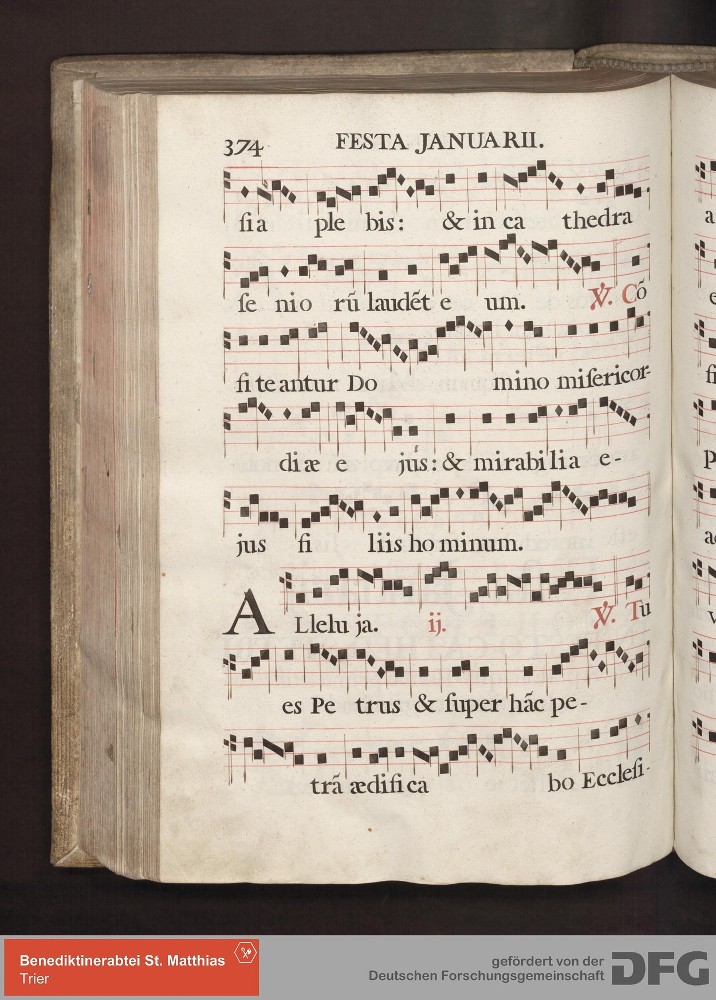 374 FESTA JANUARII.
ſia ple bis: & in ca thedra
ſe nio rũ laudẽt e um. ℣. Cõ
fi te antur Do mino miſericor-
di æ e jús: & mirabi lia e-
jus fi liis ho minum.
A Llelu ja. ij. ℣. Tu
es Pe trus & ſuper hãc pe-
trã ædifi ca bo Eccleſi-
a
e
fi
p
a
v
Benediktinerabtei St. Matthias
Trier
gefördert von der
Deutschen Forschungsgemeinschaft
DFG